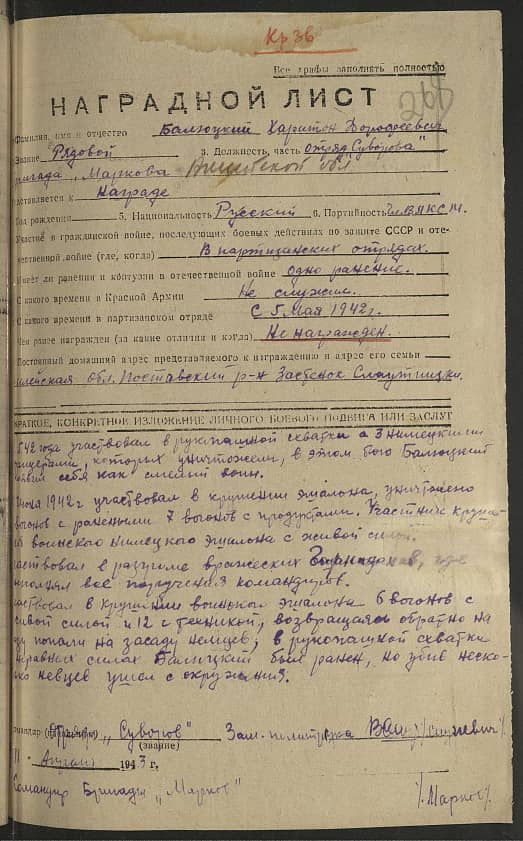 Кр Зв
Все графы заполнять полностью
НАГРАДНОЙ ЛИСТ
Фамилия, имя и отчество Балюцкий Харитон Дорофеевич
Звание Рядовой 3. Должность, часть отряд Суворова"
ригада „Маркова Вилейской обл
дставляется к Награде
Год рождения 5. Национальность Русский 6. Партийность чл. ВЛКСМ.
Участие в гражданской войне, последующих боевых действиях по защите СССР и оте-
чественной войне (где, когда) В партизанских отрядах.
Имеет ли ранения и контузии в отечественной войне одно ранение.
С какого времени в Красной Армии Не служил.
С какого времени в партизанском отряде С 5 Мая 1942 г.
Чем ранее награжден (за какие отличия и когда) Не награжден.
Постоянный домашний адрес представляемого к награждению и адрес его семьи
илейская обл. Поставский р-н Застенок
КРАТКОЕ, КОНКРЕТНОЕ ИЗЛОЖЕНИЕ ЛИЧНОГО БОЕВОГО ПОДВИГА ИЛИ ЗАСЛУГ
42 года участвовал в рукопашной схватки с 3 немецкими
которых уничтожели, в этом бою Балюцкий
себя как смелый воин.
1942 г участвовал в крушении эшалона, уничтожено
вогонов с ранеными 7 вогонов с продуктами. Участник круше-
воинского немецкого эшалона с живой силой.
аствовал в разгроме вражеских Гарнизонов, где
полнял все поручения командиров.
аствовал в крушении воинского эшалона 6 вогонов с
ивой силой и 12 с техникой, возвращаясь обратно на
зу попали на засаду немцев, в рукопашной схватки
неравных силах Балюцкий был ранен, но убив неско-
ко немцев ушел с окружения.
омандир отряда „Суворов" Зам. политрука
(звание)
11 - Апреля 1943 г.
Командир Бригады „Марков" /Марков/